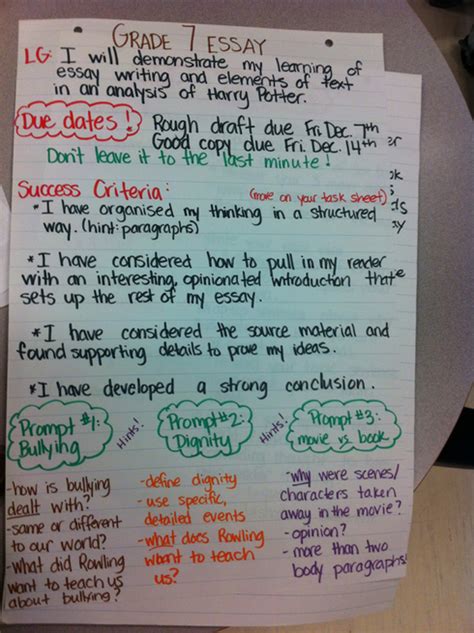 GRADE 7 ESSAY
LG: I will demonstrate my learning of
essay writing and elements of text
in an analysis of Harry Potter.
Due dates! Rough draft due Fri. Dec. 7th
Good copy due Fri. Dec. 14th
Don't leave it to the last minute!
Success Criteria: (more on your task sheet)
*I have organised my thinking in a structured
way. (hint: paragraphs)
*I have considered how to pull in my reader
with an interesting, opinionated introduction that
sets up the rest of my essay.
*I have considered the source material and
found supporting details to prove my ideas.
*I have developed a strong conclusion.
Prompt #1:
Bullying
Hints!
-how is bullying
dealt with?
-same or different
to our world?
-what did Rowling
want to teach us
about bullying?
Prompt #2:
Dignity
Hints!
-define dignity
-use specific,
detailed events
-what does Rowling
want to teach
us?
Prompt #3:
movie vs. book
-why were scenes/
characters taken
away in the movie?
-opinion?
-more than two
body paragraphs!